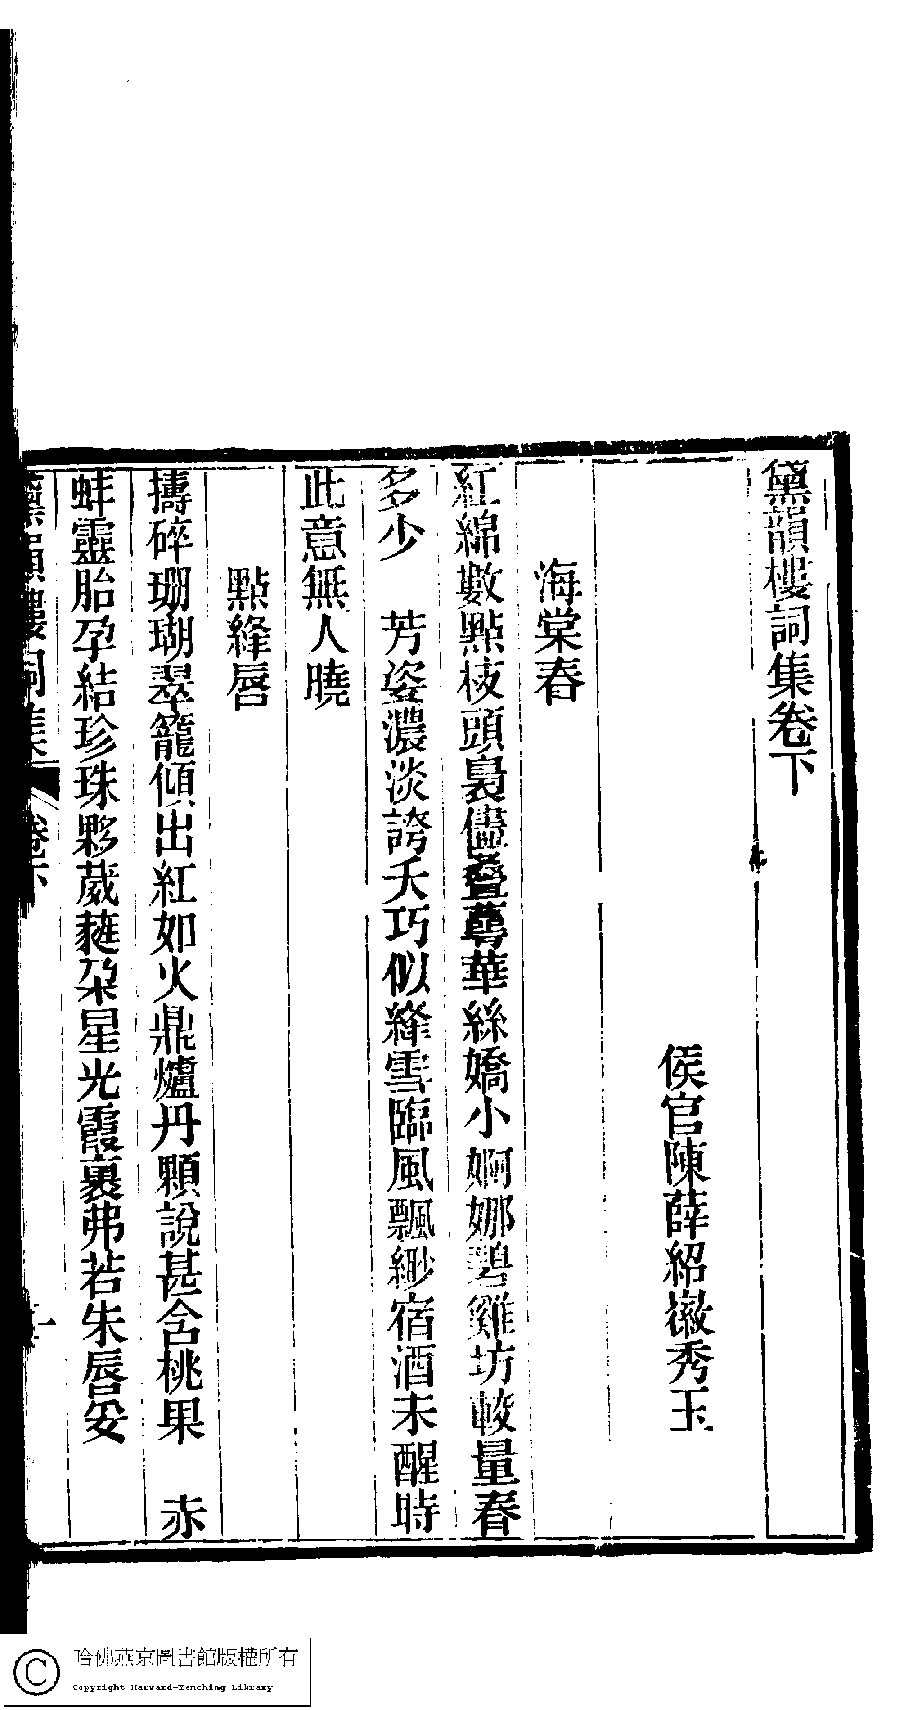 黛韻樓詞集卷下
侯官陳薛紹徽秀玉
海棠春
紅綿數點枝頭裊儘疊萼華絲嬌小婀娜碧雞坊較量春
多少　芳姿濃淡誇夭巧似絳雪臨風飄緲宿酒未醒時
此意無人曉
點絳唇
擣碎珊瑚翠籠傾出紅如火鼎爐丹顆說甚含桃果　赤
蚌靈胎孕結珍珠夥葳蕤朶星光霞裏弗若朱唇妥
黛韻樓詞集 卷下 一
哈佛燕京圖書館版權所有
Copyright Harvard-Yenching Library